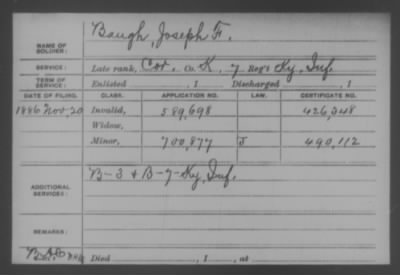 NAME OF SOLDIER: Baugh, Joseph F.
SERVICE: Late rank, Cor. Co. K, 7 Reg't Ky. Inf.
TERM OF SERVICE: Enlisted , 1 Discharged , 1
DATE OF FILING. CLASS. APPLICATION NO. LAW. CERTIFICATE NO.
1886 Nov, 20 Invalid, 589,698 426,348
Widow,
Minor, 700,877 J 490,112
ADDITIONAL SERVICES: B-3 & B-7-Ky, Inf.
REMARKS:
Died , 1 , at